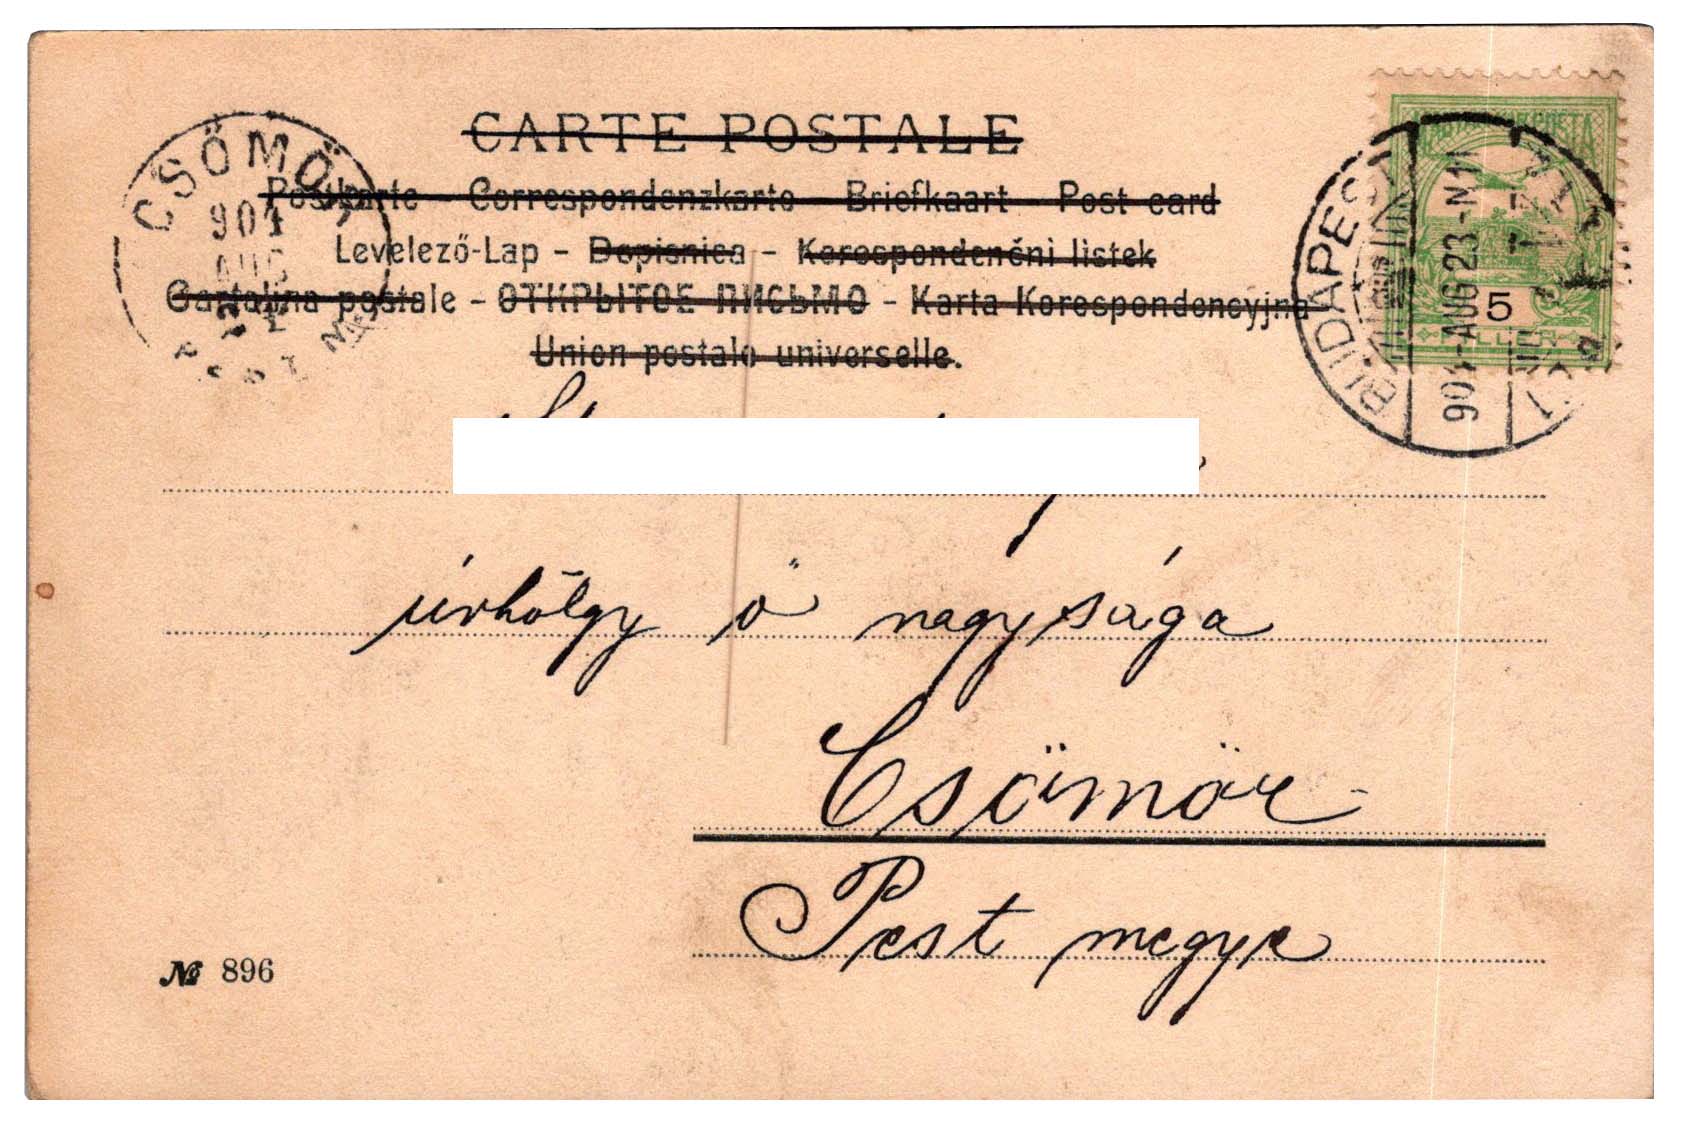 CARTE POSTALE
Postkarte - Correspondenzkarte - Briefkaart - Post card
Levelező-Lap - Dopisnica - Korespondenční listek
Cartolina postale - ОТКРЫТОЕ ПИСЬМО - Karta Korespondencyjna
Union postale universelle.
CSÖMÖR
904
AUG
BUDAPEST
904-AUG23-N11
5
úrhölgy ő nagysága
Csömör
Pest megye
№ 896